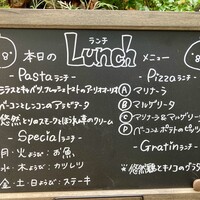 ランチ
本日の Lunch メニュー
-Pastaランチ-
シラスとキャベツ、フレッシュトマトのアーリオオーリオ
ベーコンとレンコンのアラビアータ
悠然とりのスモークとほうれん草のクリーム
-Specialランチ-
月・火ようび:お魚
水・木ようび:カツレツ
金・土・日ようび:ステーキ
-Pizzaランチ-
Ⓐ マリナーラ
Ⓑ マルゲリータ
Ⓒ マリナーラ&マルゲリータ
Ⓓ ベーコンとポテトのピッツァ
-Gratinランチ-
※悠然鶏とキノコのグラタン